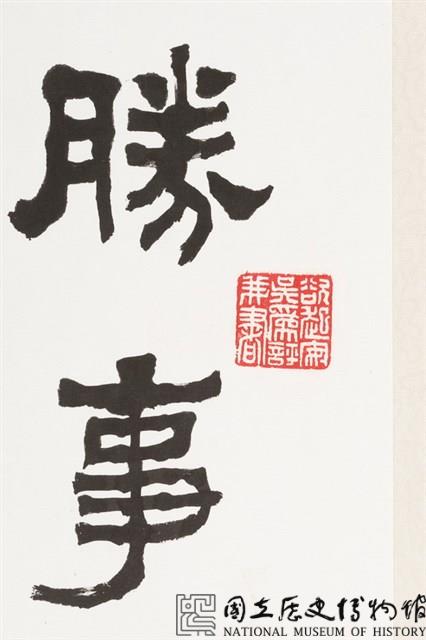 勝事
國立歷史博物館
NATIONAL MUSEUM OF HISTORY